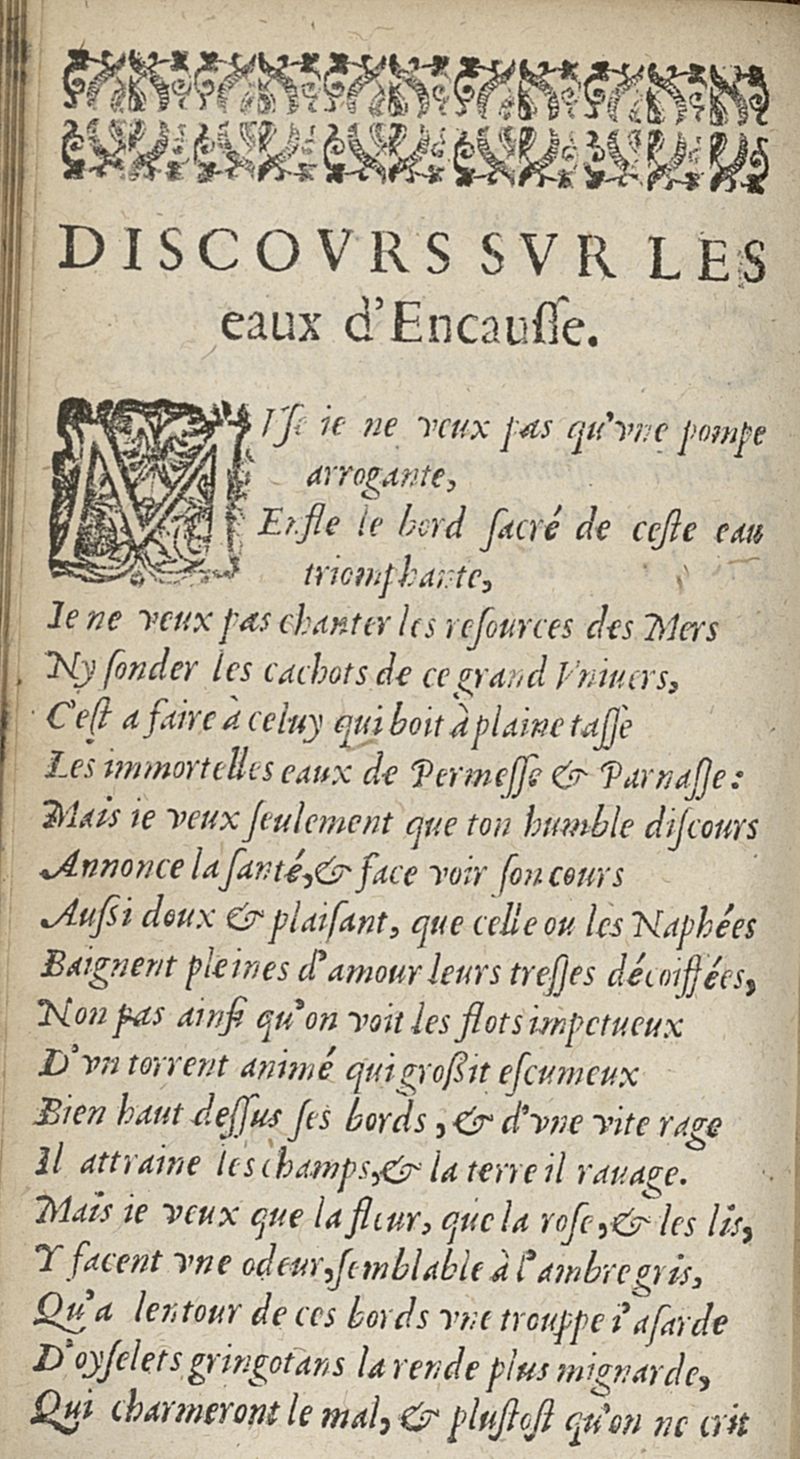 DISCOVRS SVR LES
eaux d'Encauſſe.
MVſe ie ne veux pas qu'vne pompe
arrogante,
Enfle le bord ſacré de ceſte eau
triomphante,
Ie ne veux pas chanter les reſources des Mers
Ny ſonder les cachots de ce grand Vniuers,
C'eſt a faire à celuy qui boit à plaine taſſe
Les immortelles eaux de Permeſſe & Parnaſſe:
Mais ie veux ſeulement que ton humble diſcours
Annonce la ſanté, & face voir ſon cours
Auſſi doux & plaiſant, que celle ou les Naphées
Baignent pleines d'amour leurs treſſes décoiffées,
Non pas ainſi qu'on voit les flots impetueux
D'vn torrent animé qui groſſit eſcumeux
Bien haut deſſus ſes bords, & d'vne vite rage
Il attraine les champs, & la terre il rauage.
Mais ie veux que la fleur, que la roſe, & les lis,
Y facent vne odeur, ſemblable à l'ambre gris,
Qu'a lentour de ces bords vne trouppe i'aſarde
D'oyſelets gringotans la rende plus mignarde,
Qui charmeront le mal, & pluſtoſt qu'on ne crit